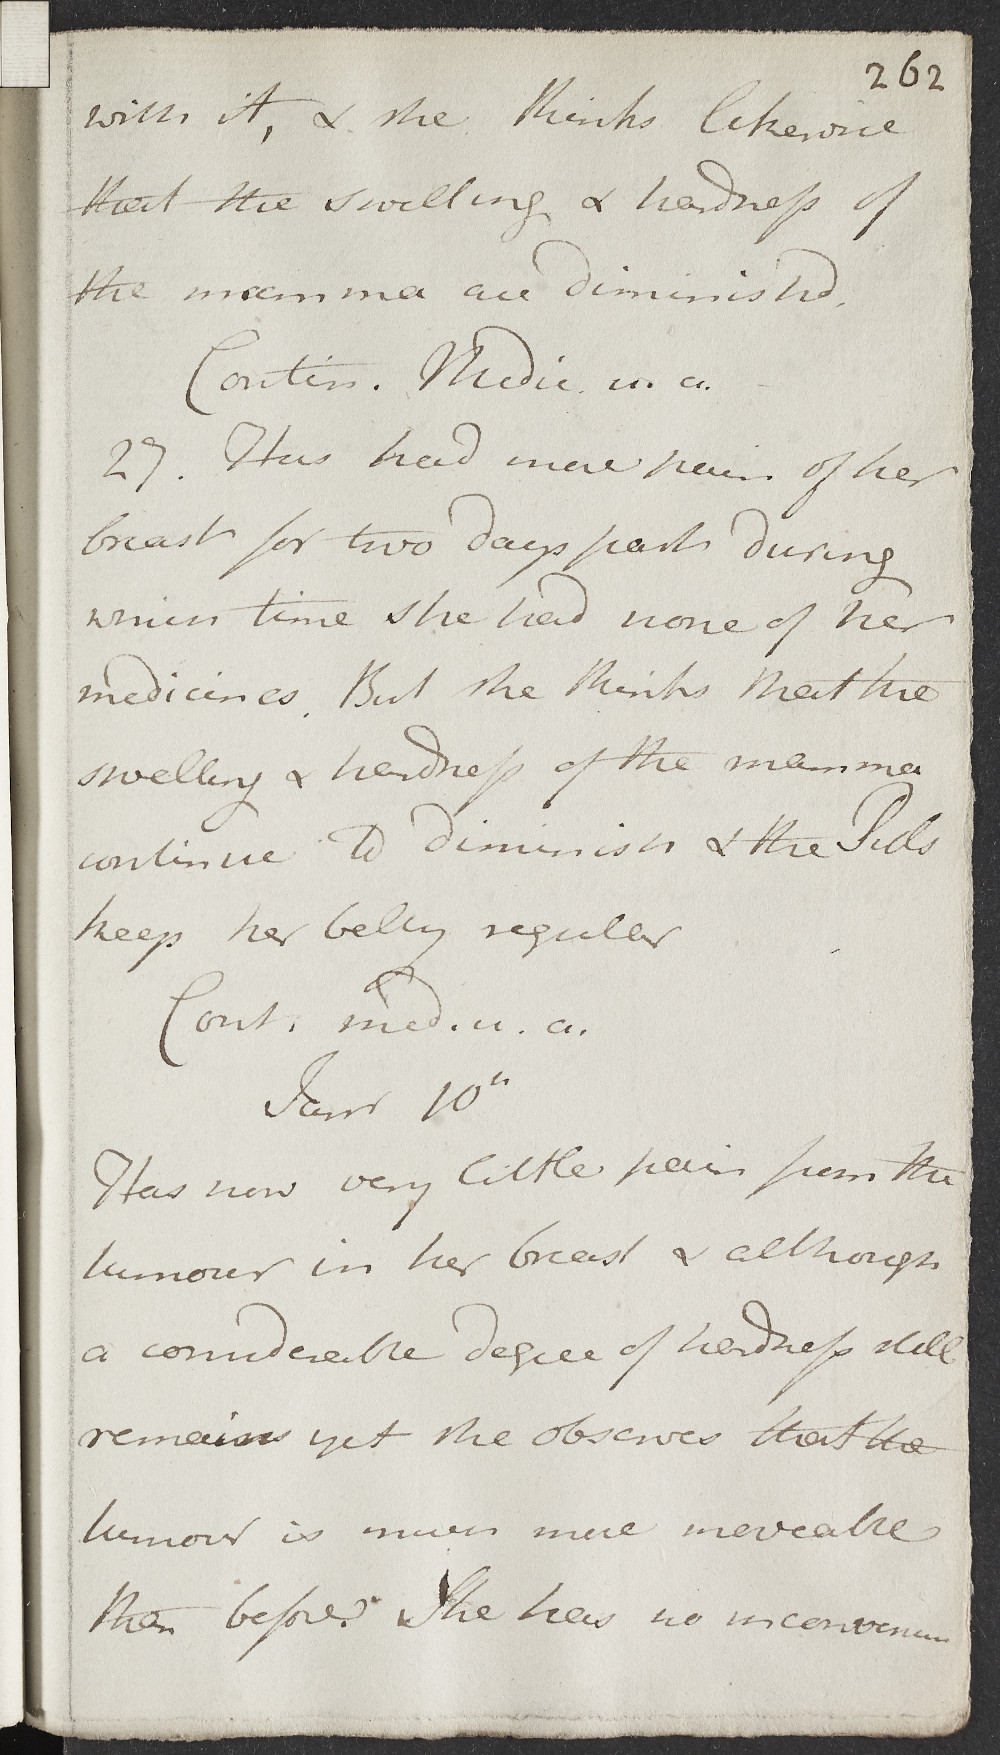 262
with it, & she thinks likewise
that the swelling & hardness of
the mamma are diminishd.
Contin. Medic. u. a.
27. Has had more pain of her
breast for two days past during
which time she had none of her
medicines. But she thinks that the
swelling & hardness of the mamma
continue to diminish & the Pills
keep her belly regular
Cont. med. u. a.
Janr 10th
Has now very little pain from the
tumour in her breast & although
a considerable degree of hardness still
remains yet she observes that the
tumour is much more moveable
than before. She has no inconvenien